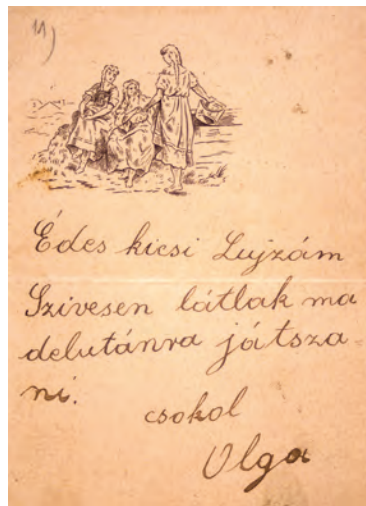 11)
Édes kicsi Lujzám
Szivesen látlak ma
delutánra játsza-
ni.
csokol
Olga